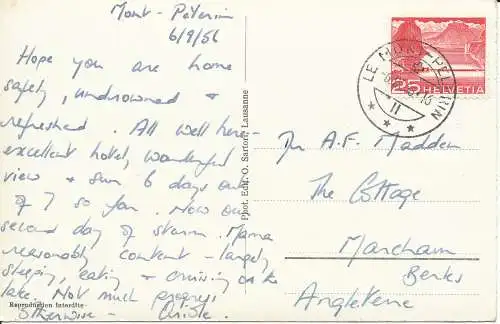 Mont-Pélerin
6/9/56
Hope you are home
safely, undrowned &
refreshed. All well here -
excellent hotel, wonderful
view & sun 6 days out
of 7 so far. Now our
second day of storm. Mama
reasonably content - largely
sleeping, eating & cruising on the
lake. Not much progress
otherwise -
Reproduction Interdite
Phot. Edit. O. Sartori, Lausanne
25 HELVETIA
LE MONT-PELERIN
II
A.F. Madden
The Cottage
Marcham
Berks
Angleterre